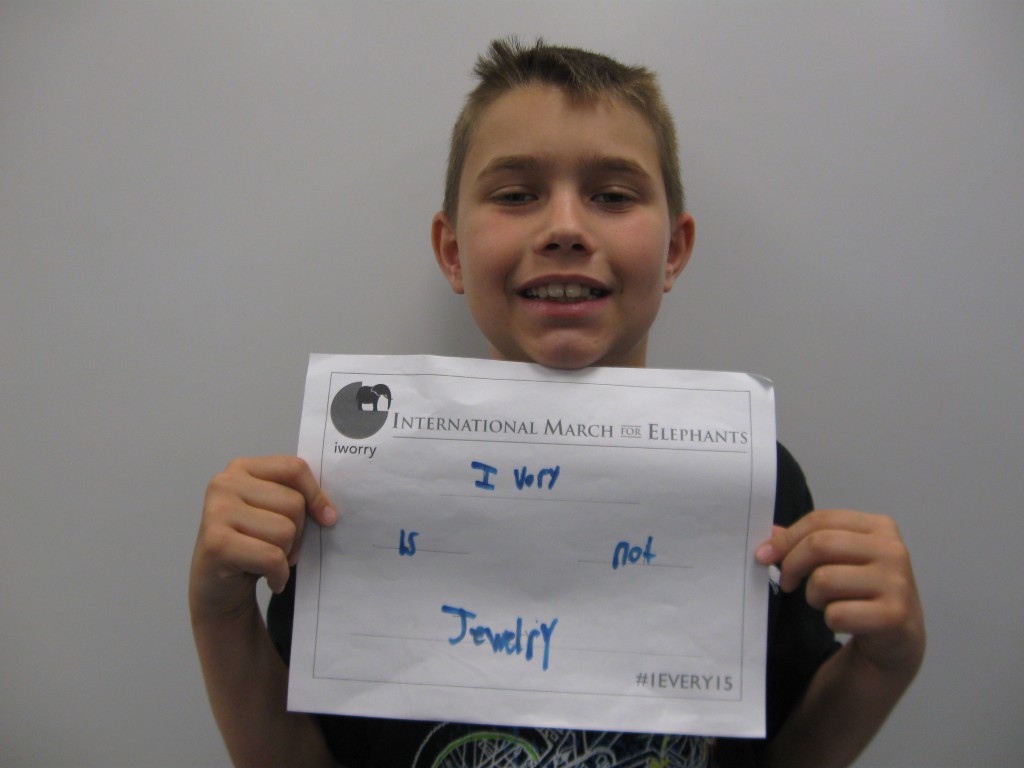 INTERNATIONAL MARCH FOR ELEPHANTS
iworry
I vory
is not
Jewelry
#1EVERY15